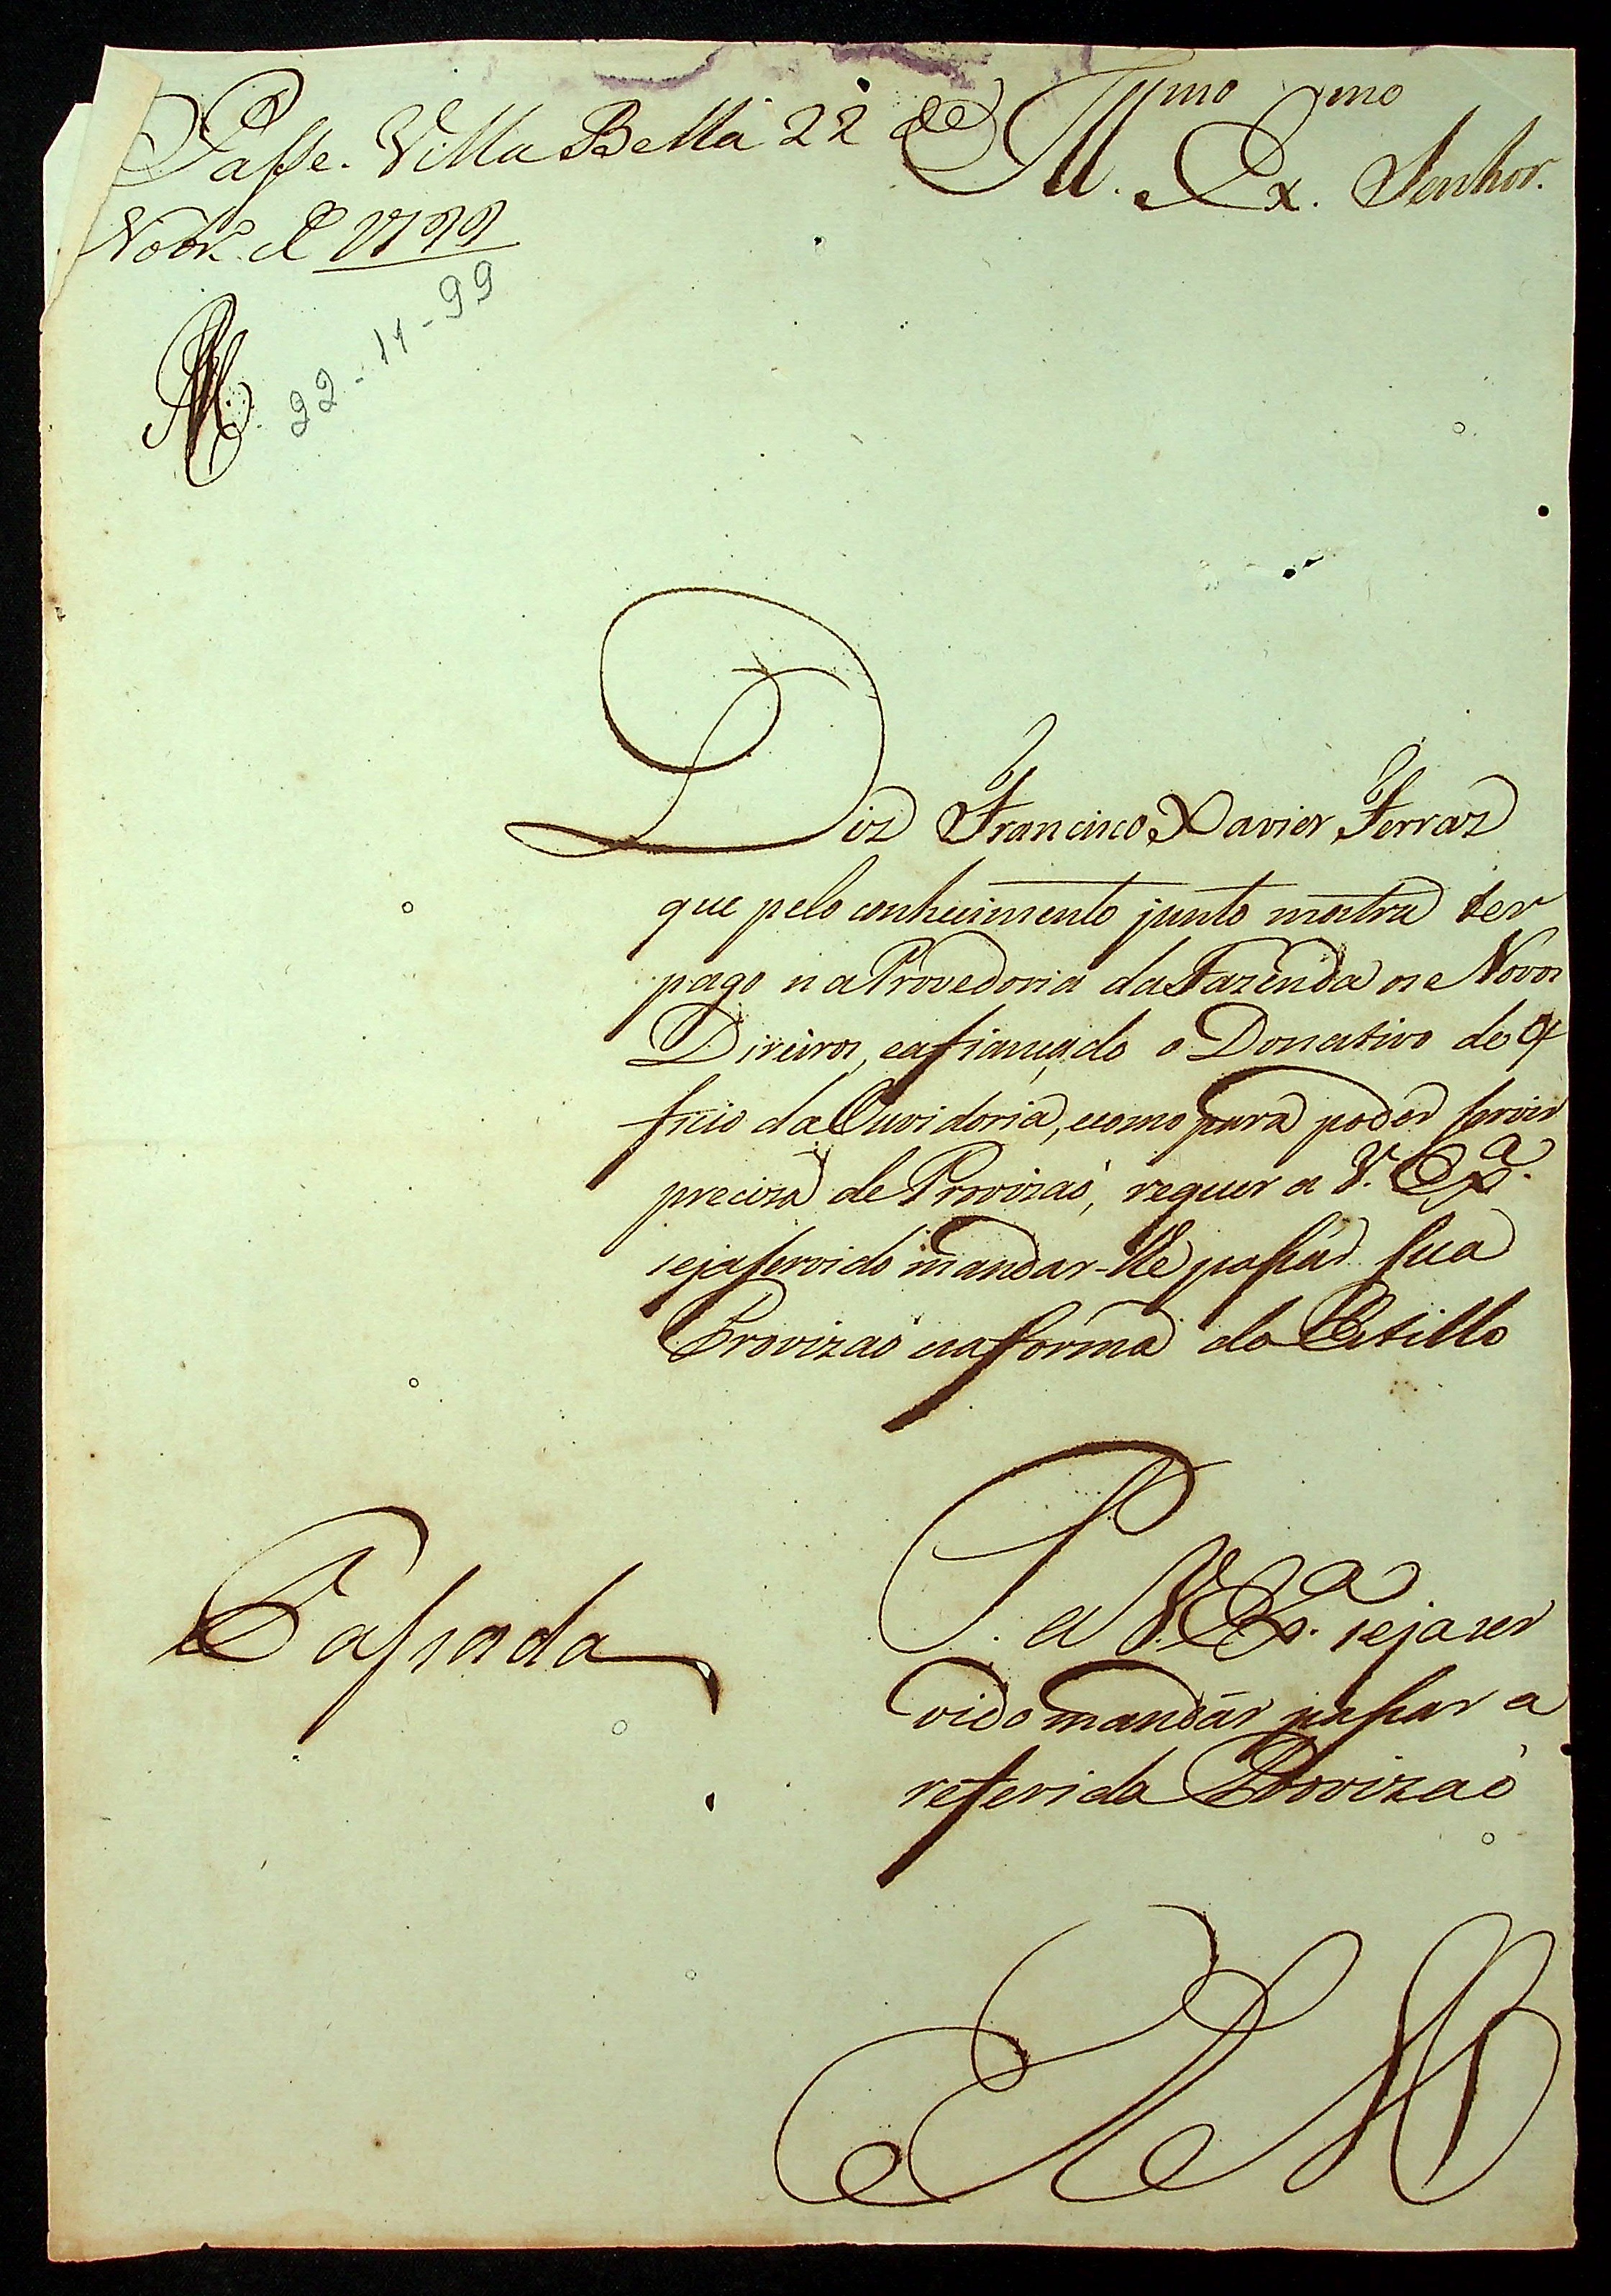 Passe. Villa Bella 22 de
Novbr.º de 1799
22-11-99
Ill.mo Ex.mo Senhor.
Diz Francisco Xavier Ferraz
que pelo conhecimento junto mostra ter
pago na Provedoria da Fazenda os Novos
Direitos, e afiançado o Donativo do Of
ficio da Ouvidoria, e como para poder servir
preciza de Provizaõ, requer a V. Ex.ª
seja servido mandar-lhe passar sua
Provizaõ na forma do Estillo
P. a V. Ex.ª seja ser
vido mandar passar a
referida Provizaõ
Passada
E R M